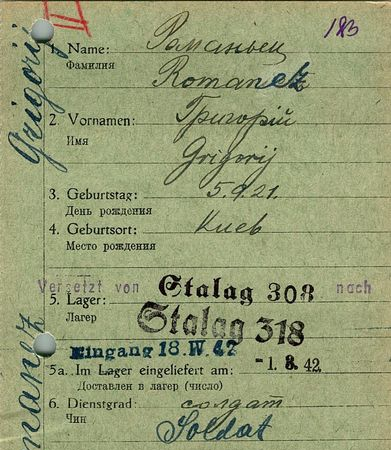 II
183
1. Name: Романьец
Фамилия
Romanez
2. Vornamen: Григорій
Имя
Grigorij
3. Geburtstag: 5.9.21.
День рождения
4. Geburtsort: Киев
Место рождения
Versetzt von Stalag 308 nach
5. Lager: Stalag 318
Лагер
Eingang 18. IV. 42
-1. 8. 42
5a. Im Lager eingeliefert am:
Доставлен в лагер (число)
6. Dienstgrad: солдат
Чин
Soldat
Grigorij
manez